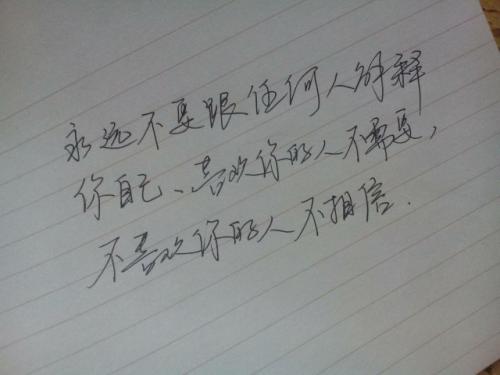 永远不要跟任何人解释
你自己、喜欢你的人不需要,
不喜欢你的人不相信.